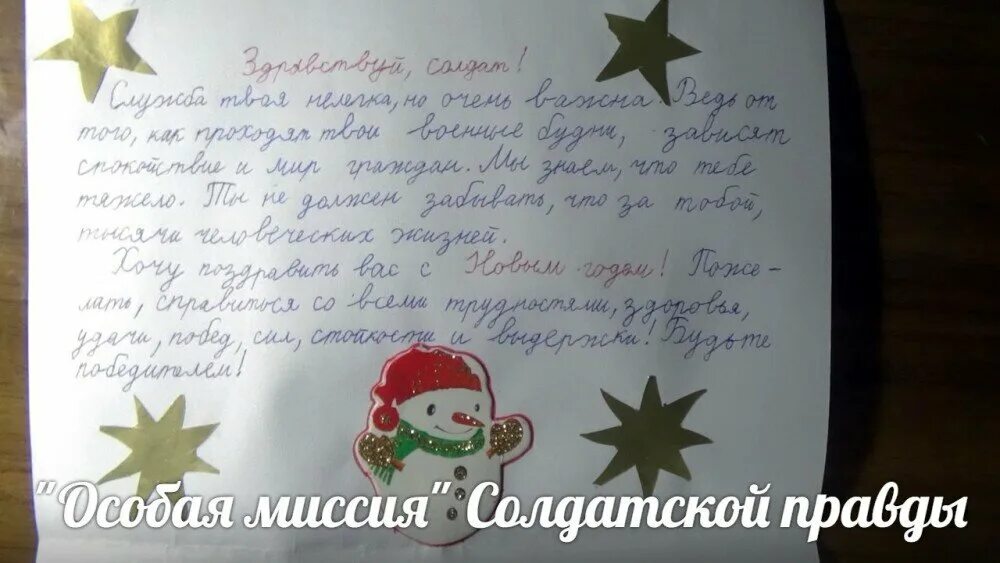 Здравствуй, солдат!
Служба твоя нелегка, но очень важна. Ведь от
того, как проходят твои военные будни, зависят
спокойствие и мир граждан. Мы знаем, что тебе
тяжело. Ты не должен забывать, что за тобой,
тысячи человеческих жизней.
Хочу поздравить вас с Новым годом! Поже-
лать, справиться со всеми трудностями, здоровья,
удачи, побед, сил, стойкости и выдержки! Будьте
победителем!
"Особая миссия" Солдатской правды